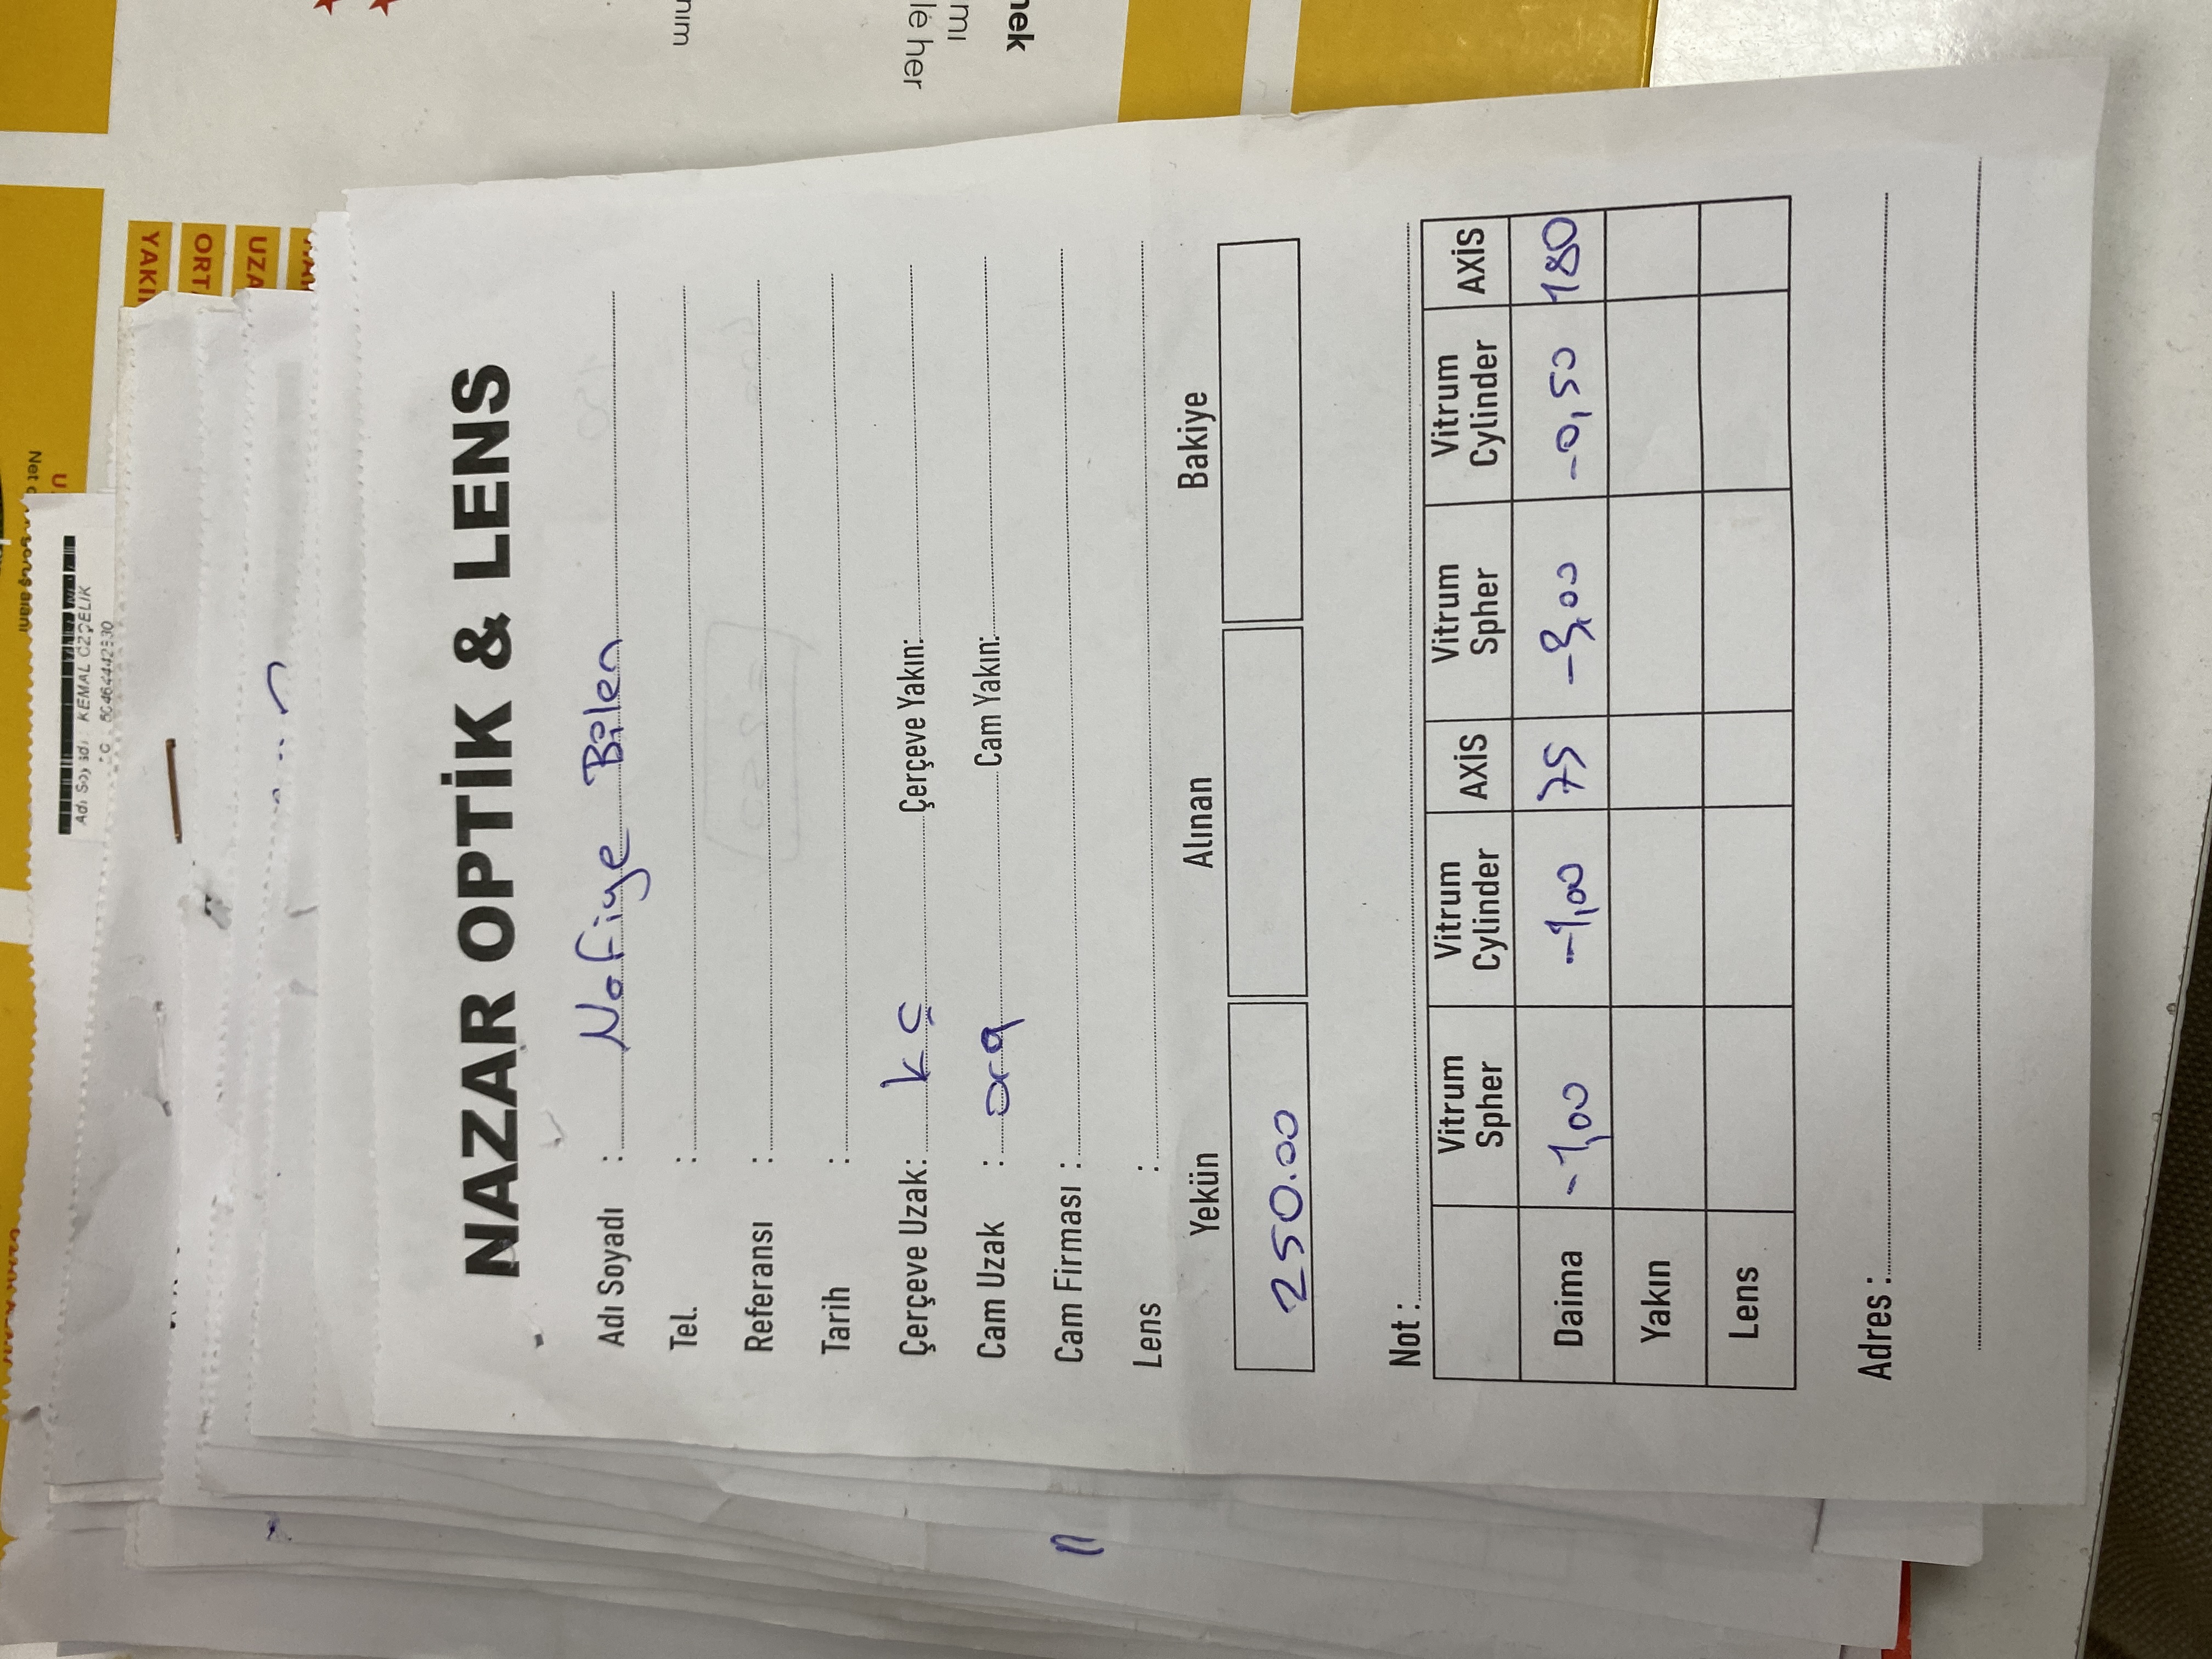 Net
Adı Soyadı : KEMAL ÖZÇELİK
YAKI
ORT
UZA
NAZAR OPTİK & LENS
Adı Soyadı : Nafiye Bilen
Tel. :
Referansı :
Tarih :
Çerçeve Uzak: kç Çerçeve Yakın:
Cam Uzak : org Cam Yakın:
Cam Firması :
Lens :
Yekün Alınan Bakiye
250.00
Not :
Vitrum Spher Vitrum Cylinder AXİS Vitrum Spher Vitrum Cylinder AXİS
Daima -1,00 -1,00 75 -3,00 -0,50 180
Yakın
Lens
Adres :
le her
mı